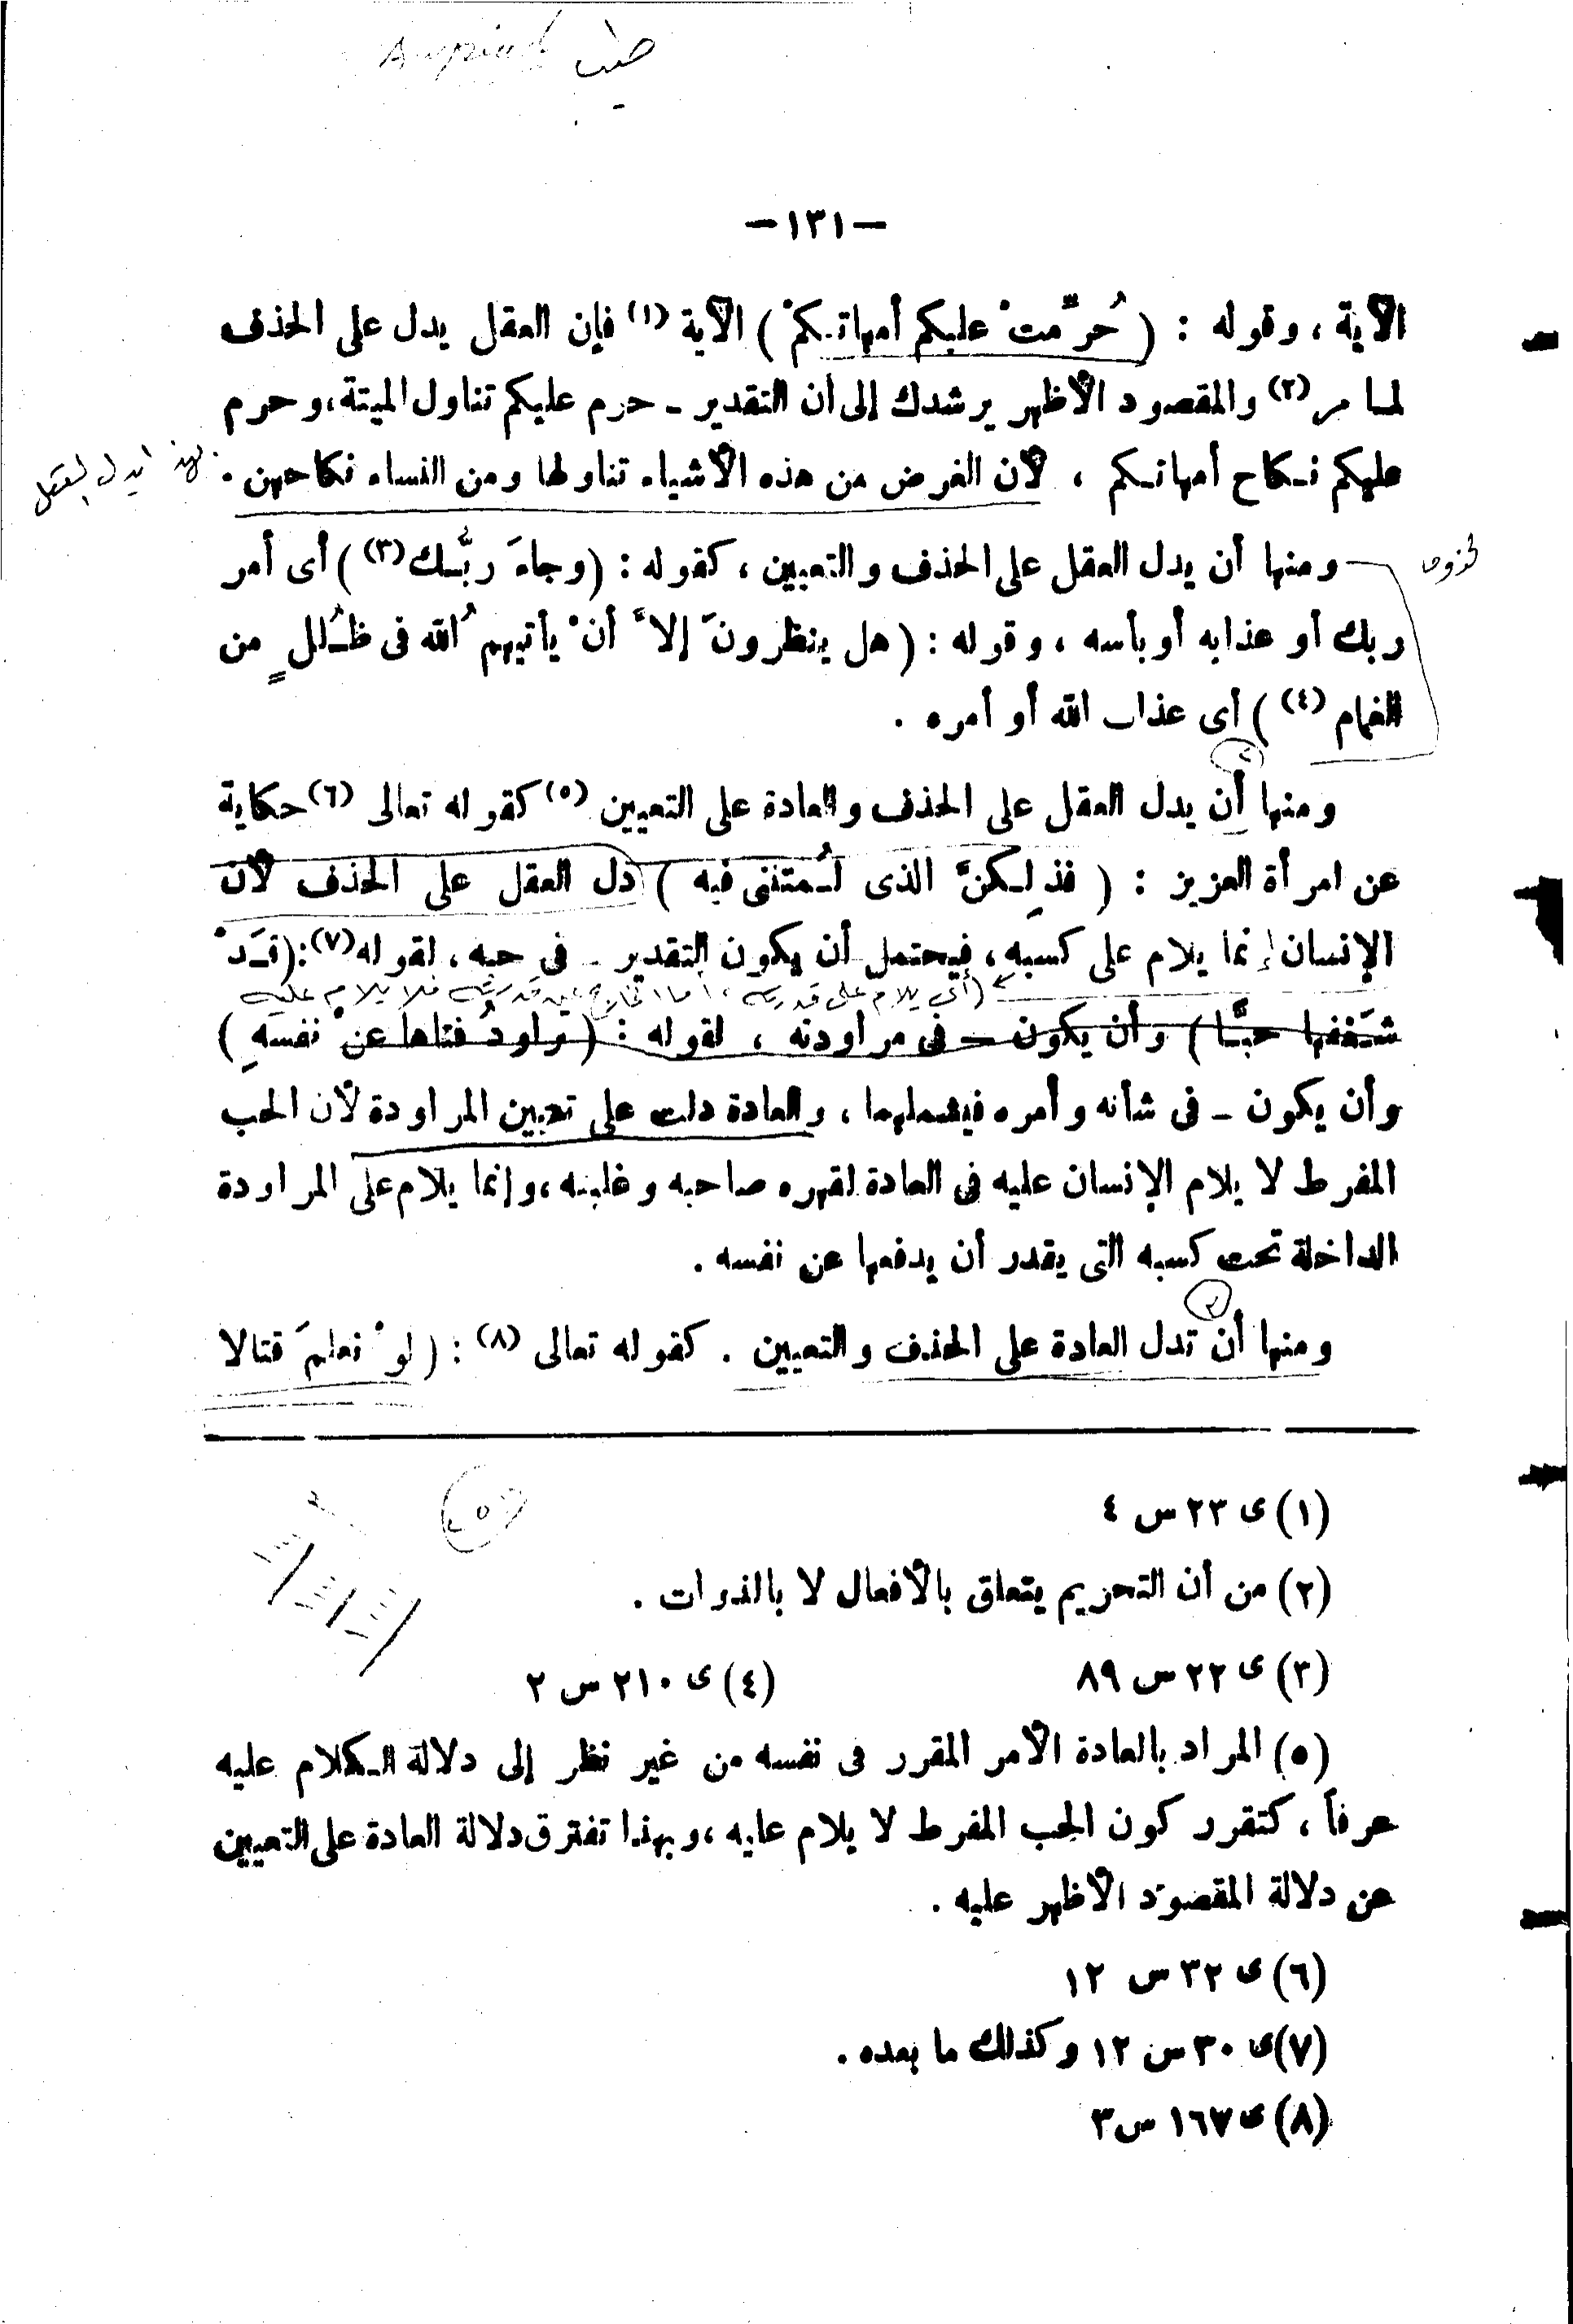 —١٣١—
الآية ، وقوله : ( حُرِّمتْ عليكم أمهاتـكمْ ) الآية (١) فإن العقل يدل على الحذف
لمـا مر (٢) والمقصود الأظهر يرشدك إلى أن التقدير ـ حرم عليكم تناول الميتة، وحرم
عليكم نـكاح أمهاتـكم ، لأن الغرض من هذه الأشياء تناولها ومن النساء نكاحهن .
ومنها أن يدل العقل على الحذف والتعيين ، كقوله : (وجاءَ ربُّـك (٣) ) أى أمر
ربك أو عذابه أو بأسه ، وقوله : ( هل ينظرونَ إلاَّ أنْ يأتيهمُ الله فى ظُـللٍ من
الغمام (٤) ) أى عذاب الله أو أمره .
ومنها أن يدل العقل على الحذف والعادة على التعيين (٥) كقوله تعالى (٦) حكاية
عن امرأة العزيز : ( فذلِـكنَّ الذى لُـمتننى فيه ) دل العقل على الحذف لأن
الإنسان إنما يلام على كسبه ، فيحتمل أن يكون التقدير ـ فى حبه ، لقوله (٧) : (قَـدْ
(أى يلام على قدرته ، أما الخارج عن قدرته فلا يلام عليه
شَـغفها حبًّـا ) وأن يكون ـ فى مراودته ، لقوله : ( تراودُ فتاها عنْ نفسهِ )
وأن يكون ـ فى شأنه وأمره فيشملهما ، والعادة دلت على تعيين المراودة لأن الحب
المفرط لا يلام الإنسان عليه فى العادة لقهره صاحبه وغلبته ، وإنما يلام على المراودة
الداخلة تحت كسبه التى يقدر أن يدفعها عن نفسه .
ومنها أن تدل العادة على الحذف والتعيين . كقوله تعالى (٨) : ( لوْ نعلمَ قتالا
(١) ى ٢٣ س ٤
(٢) من أن التحريم يتعلق بالأفعال لا بالذوات .
(٣) ى ٢٢ س ٨٩ (٤) ى ٢١٠ س ٢
(٥) المراد بالعادة الأمر المقرر فى نفسه من غير نظر إلى دلالة الـكلام عليه
عرفاً ، كتقرر كون الحب المفرط لا يلام عليه ، وبهذا تفترق دلالة العادة على التعيين
عن دلالة المقصود الأظهر عليه .
(٦) ى ٣٢ س ١٢
(٧) ى ٣٠ س ١٢ وكذلك ما بعده .
(٨) ى ١٦٧ س ٣